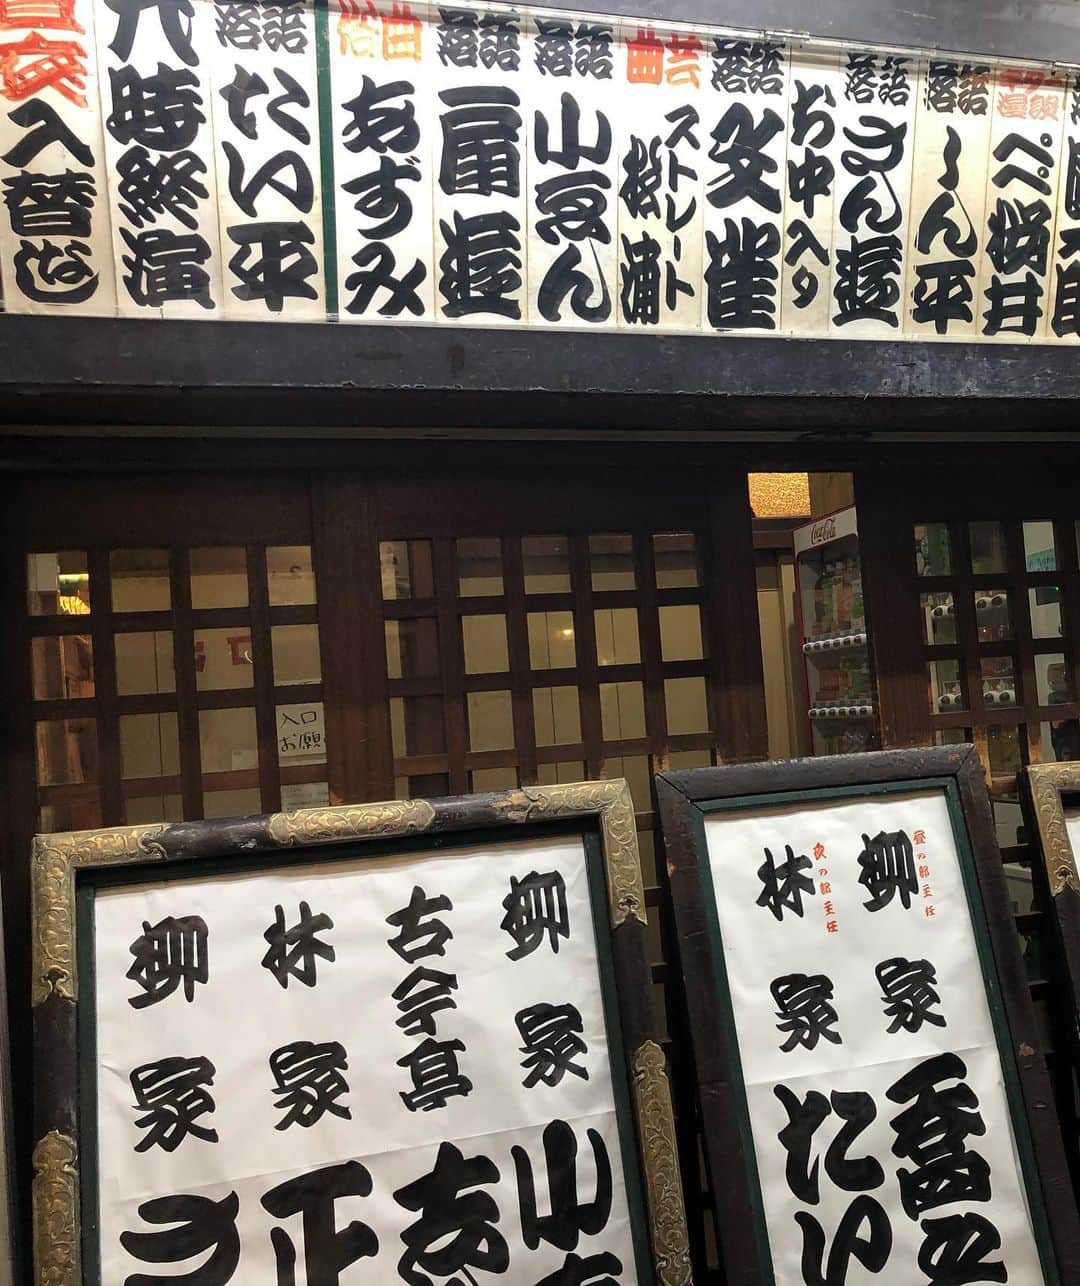 昼夜入替なし
八時終演
落語 たい平
俗曲 あずみ
落語 扇遊
落語 小ゑん
曲芸 ストレート松浦
落語 文雀
お中入り
落語 さん遊
落語 しん平
漫談 ペペ桜井
落語
Coca-Cola
入口
お願
柳家 小
古今亭
林家 正
柳家
昼の部主任
柳家
夜の部主任
林家 たい